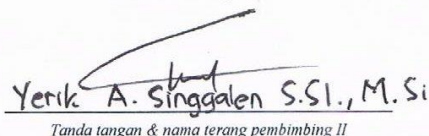 Yerik A. Singgalen S.SI., M.Si
Tanda tangan & nama terang pembimbing II